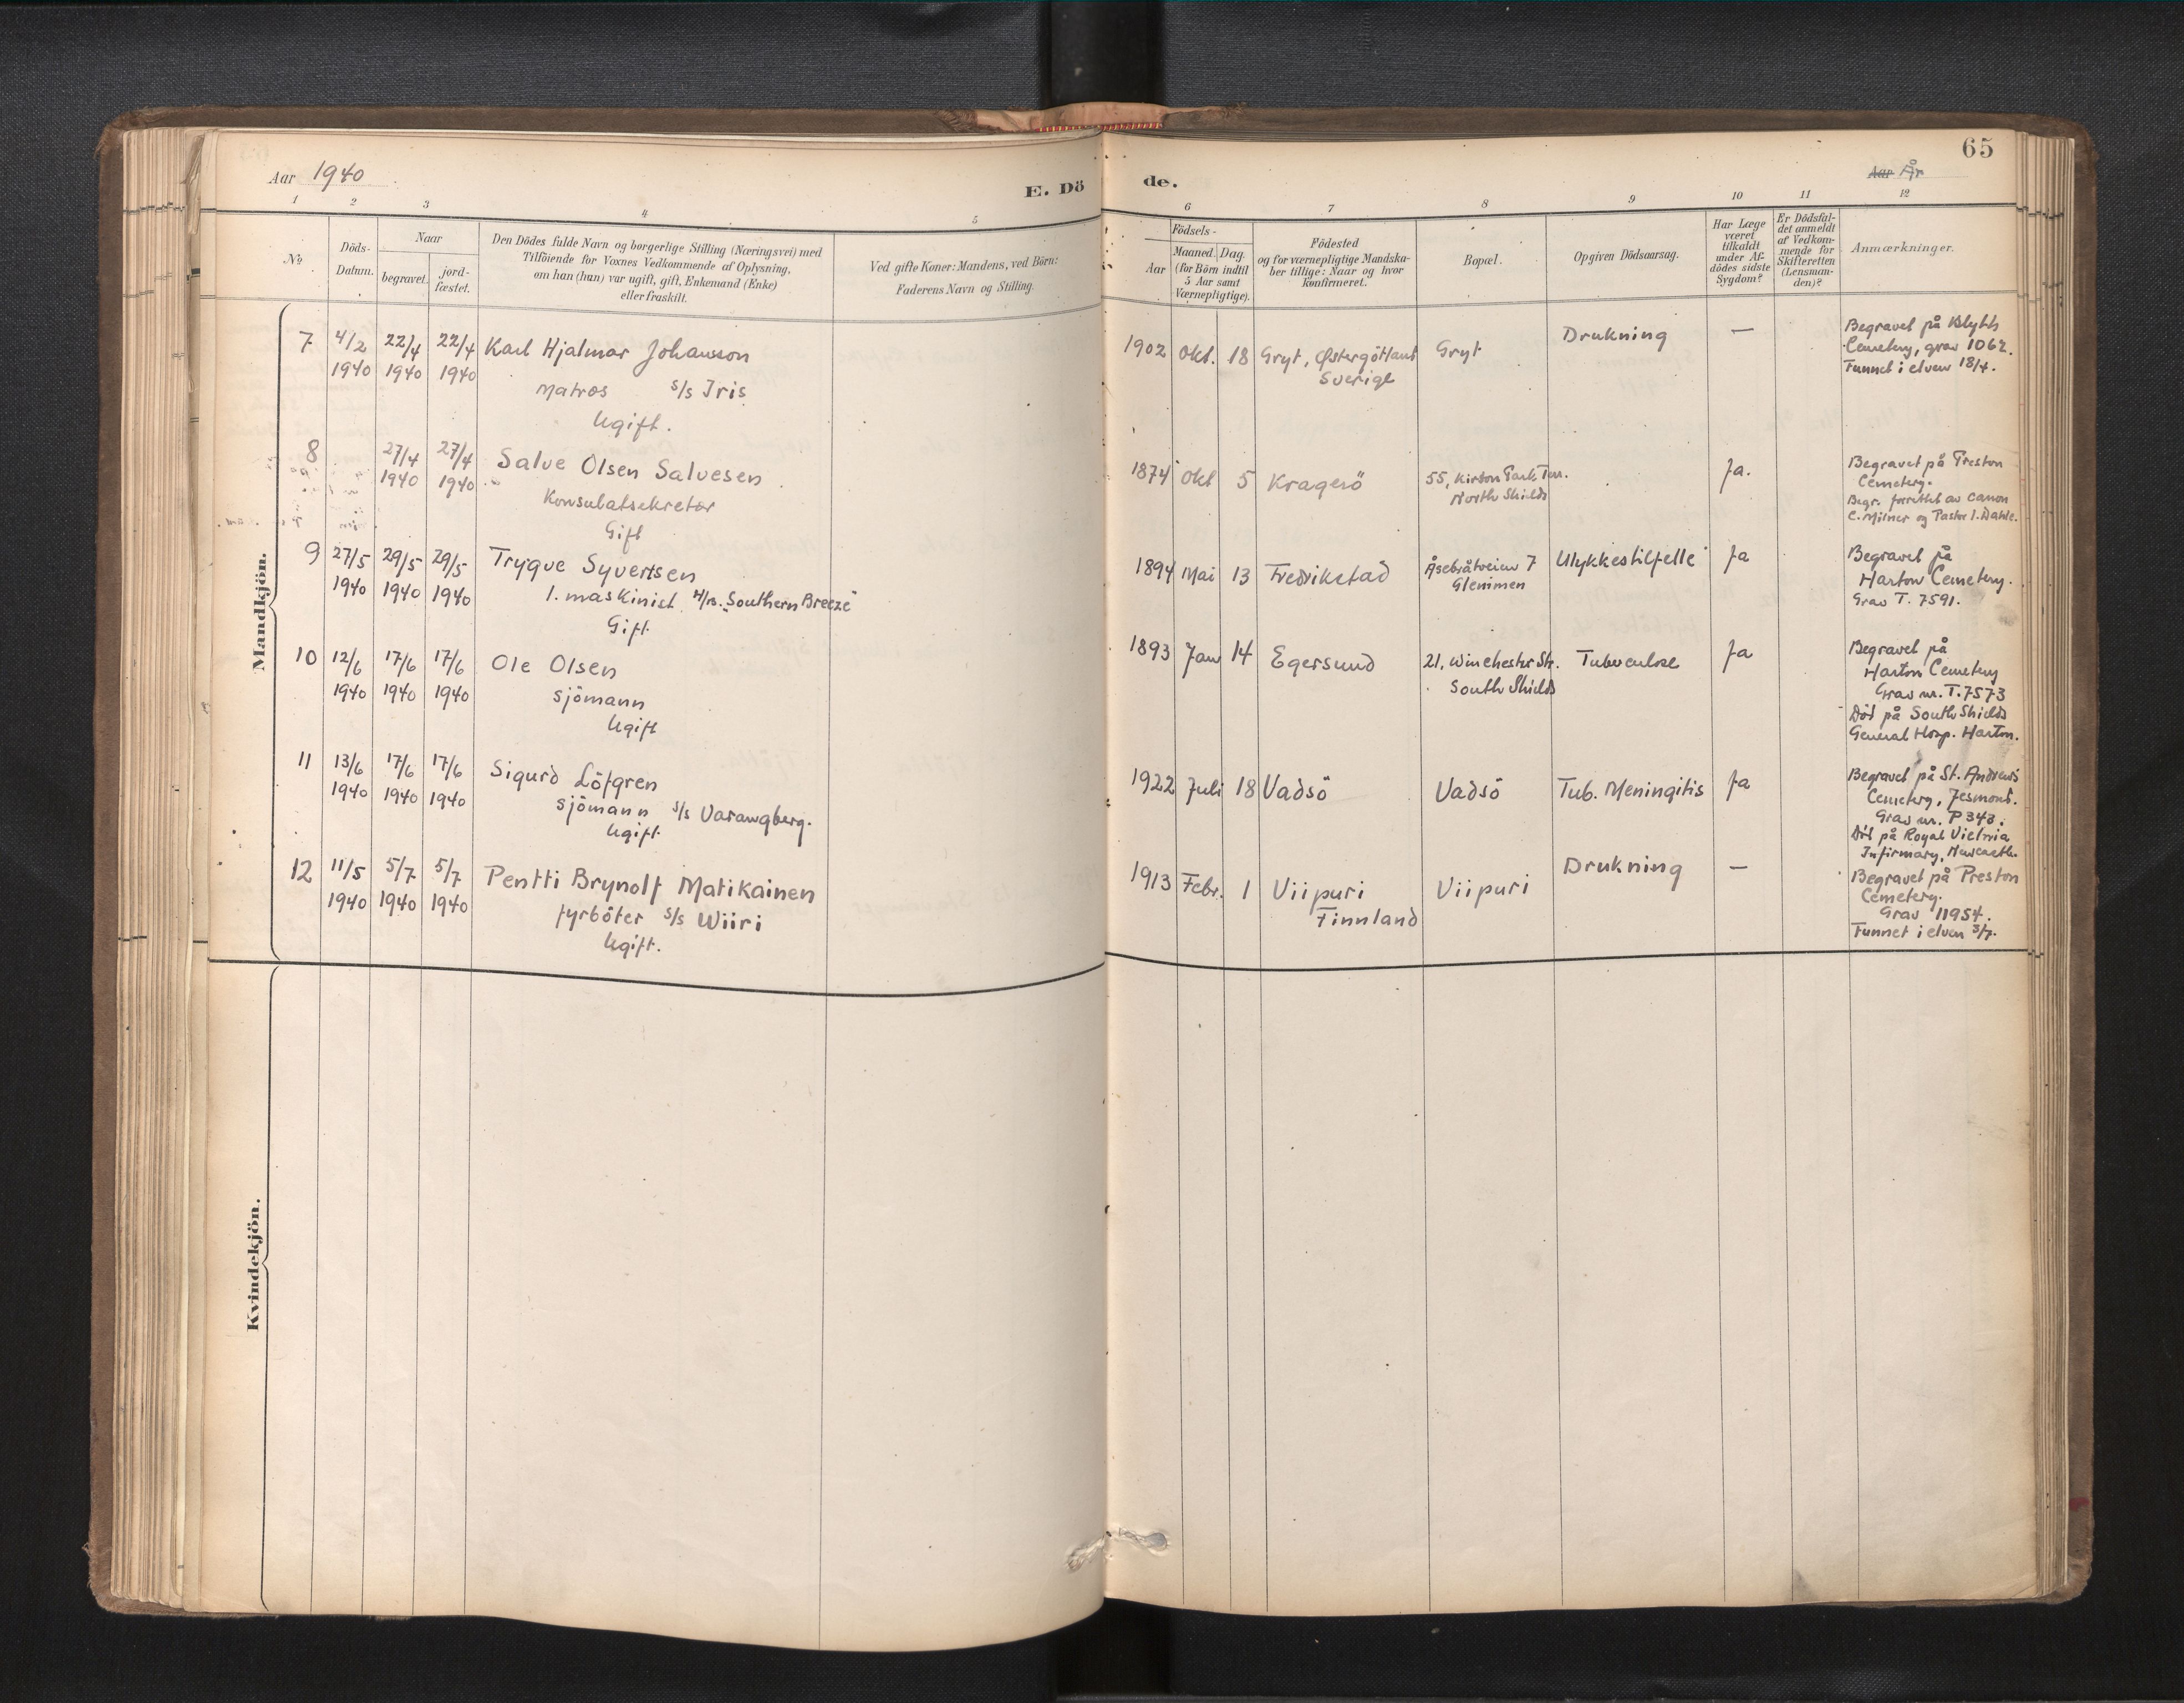 65
Aar 1940
E. Dö
de.
Aar År
1 2 3 4 5 6 7 8 9 10 11 12
No
Döds-
Datum.
Naar
begravet.
jord-
fæstet.
Den Dödes fulde Navn og borgerlige Stilling (Næringsvei) med
Tilföiende for Voxnes Vedkommende af Oplysning,
om han (hun) var ugift, gift, Enkemand (Enke)
eller fraskilt.
Ved gifte Koner: Mandens, ved Börn:
Faderens Navn og Stilling.
Födsels-
Aar
Maaned. Dag.
(for Börn indtil
5 Aar samt
Værnepligtige).
Födested
og for værnepligtige Mandska-
ber tillige: Naar og hvor
konfirmeret.
Bopæl.
Opgiven Dödsaarsag.
Har Læge
været
tilkaldt
under Af-
dödes sidste
Sygdom?
Er Dödsfal-
det anmeldt
af Vedkom-
mende for
Skifteretten
(Lensman-
den)?
Anmærkninger.
Mandkjön.
7 4/2 1940 22/4 1940 22/4 1940
Karl Hjalmar Johansson
Matros S/S Iris
Ugift.
1902 Okt. 18
Gryt, Østergötland
Sverige
Gryt
Drukning
—
Begravet på Blyth
Cemetery, grav 1062.
Funnet i elven 18/4.
8 27/4 1940 27/4 1940
Salve Olsen Salvesen
Konsulatsekretær
Gift
1874 Okt 5
Kragerö
55, Kirton Park Terr.
North Shields
Ja.
Begravet på Preston
Cemetery.
Begr. forrettet av Canon
C. Milner og Pastor I. Dahle.
9 27/5 1940 29/5 1940 29/5 1940
Trygve Syvertsen
1. maskinist M/B. "Southern Breeze"
Gift.
1894 Mai 13
Fredrikstad
Åsebråtveien 7
Glemmen
Ulykkestilfelle
Ja
Begravet på
Harton Cemetery.
Grav T. 7591.
10 12/6 1940 17/6 1940 17/6 1940
Ole Olsen
sjömann
Ugift
1893 Jan 14
Egersund
21, Winchester Str.
South Shields
Tuberculose
Ja
Begravet på
Harton Cemetery
Grav nr. T.7573
Död på South Shields
General Hosp. Harton.
11 13/6 1940 17/6 1940 17/6 1940
Sigurd Löfgren
sjömann S/S Varangberg.
Ugift.
1922 Juli 18
Vadsö
Vadsö
Tub. Meningitis
Ja
Begravet på St. Andrew's
Cemetery, Jesmond.
Grav nr. P 343.
Död på Royal Victoria
Infirmary, Newcastle.
12 11/5 1940 5/7 1940 5/7 1940
Pentti Brynolf Matikainen
fyrböter S/S Wiiri
Ugift.
1913 Febr. 1
Viipuri
Finnland
Viipuri
Drukning
—
Begravet på Preston
Cemetery.
Grav 11954.
Funnet i elven 3/7.
Kvindekjön.